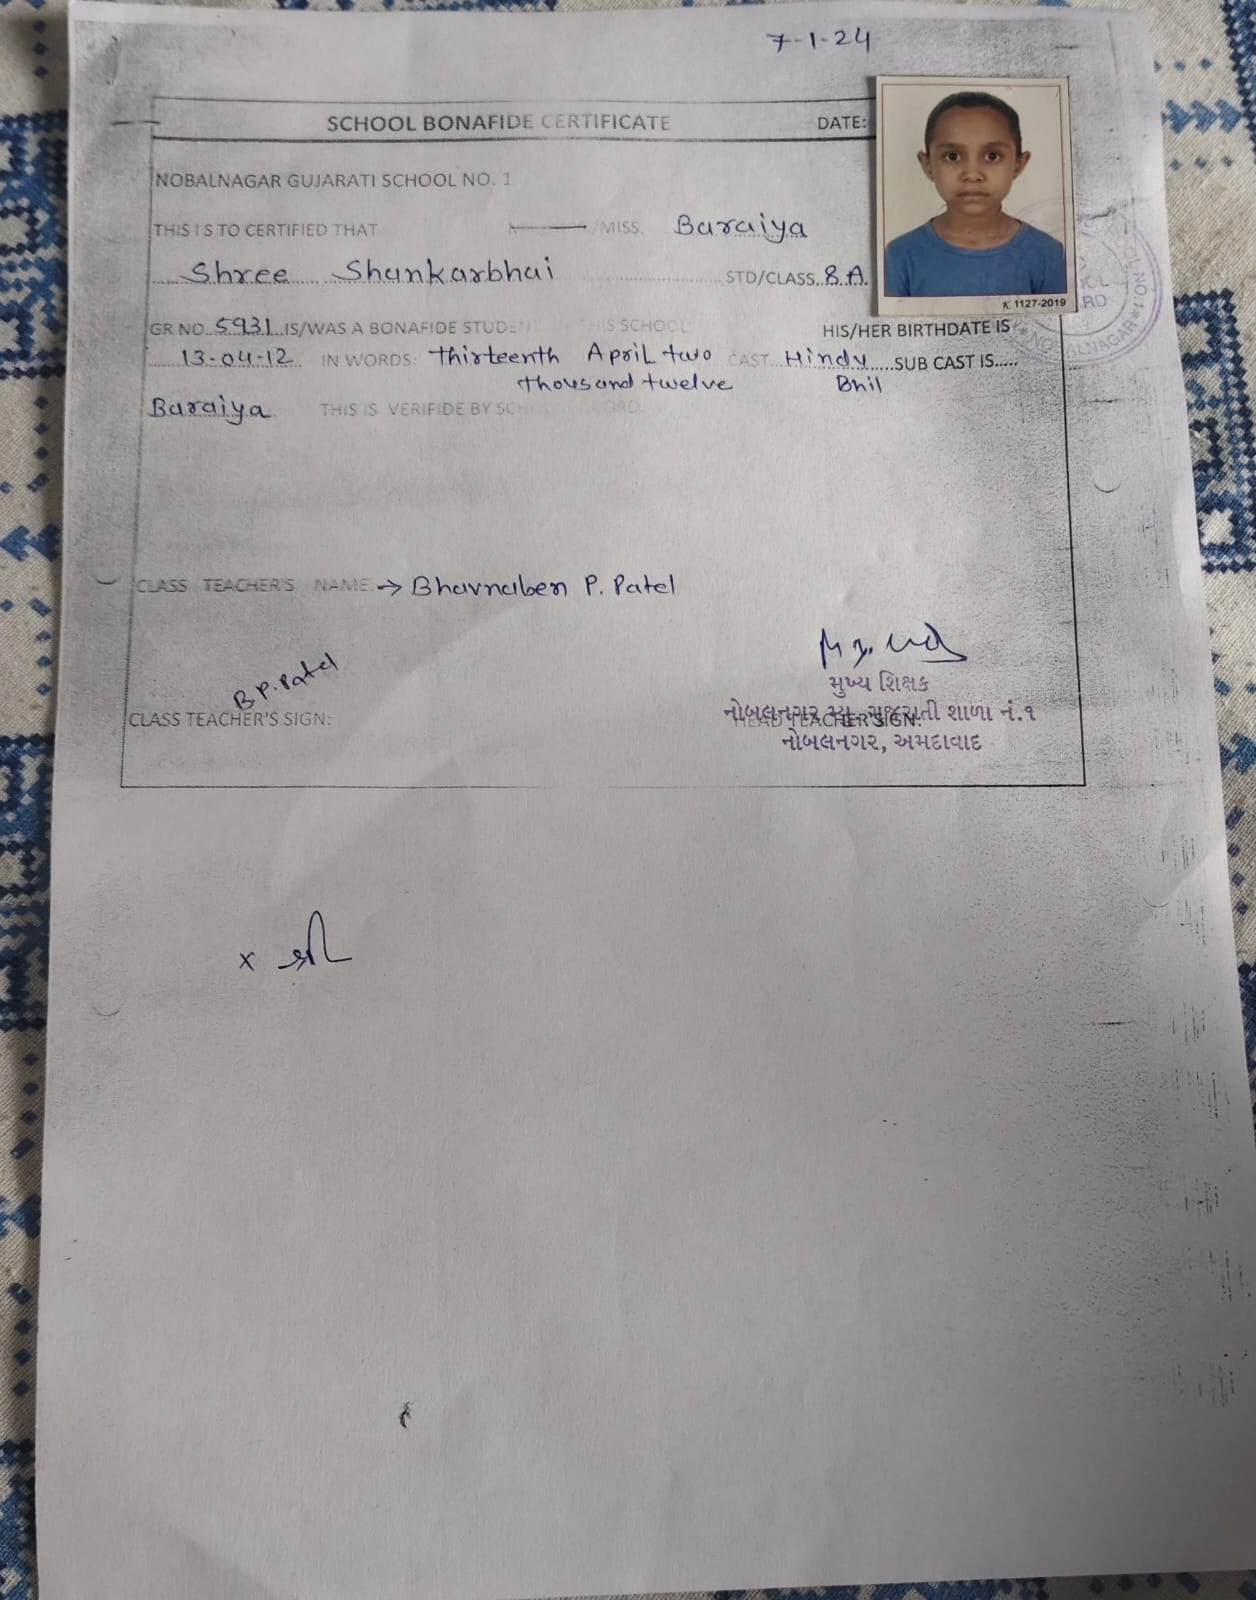 7-1-24
SCHOOL BONAFIDE CERTIFICATE DATE:
NOBALNAGAR GUJARATI SCHOOL NO. 1
THIS IS TO CERTIFIED THAT /MISS. Baraiya
Shree Shankarbhai STD/CLASS..8.A.
K 1127-2019
GR NO..5931..IS/WAS A BONAFIDE STUDENT THIS SCHOOL HIS/HER BIRTHDATE IS
13-04-12 IN WORDS: Thirteenth April two CAST...Hindu.....SUB CAST IS.....
thousand twelve Bhil
Baraiya THIS IS VERIFIDE BY
NOBALNAGAR NO.1
CLASS TEACHER'S NAME. → Bhavnaben P. Patel
B.P.Patel
મુખ્ય શિક્ષક
CLASS TEACHER'S SIGN: HEAD TEACHER'SIGN:
નોબલનગર મ્યુ. ગુજરાતી શાળા નં.૧
નોબલનગર, અમદાવાદ
x શ્રી